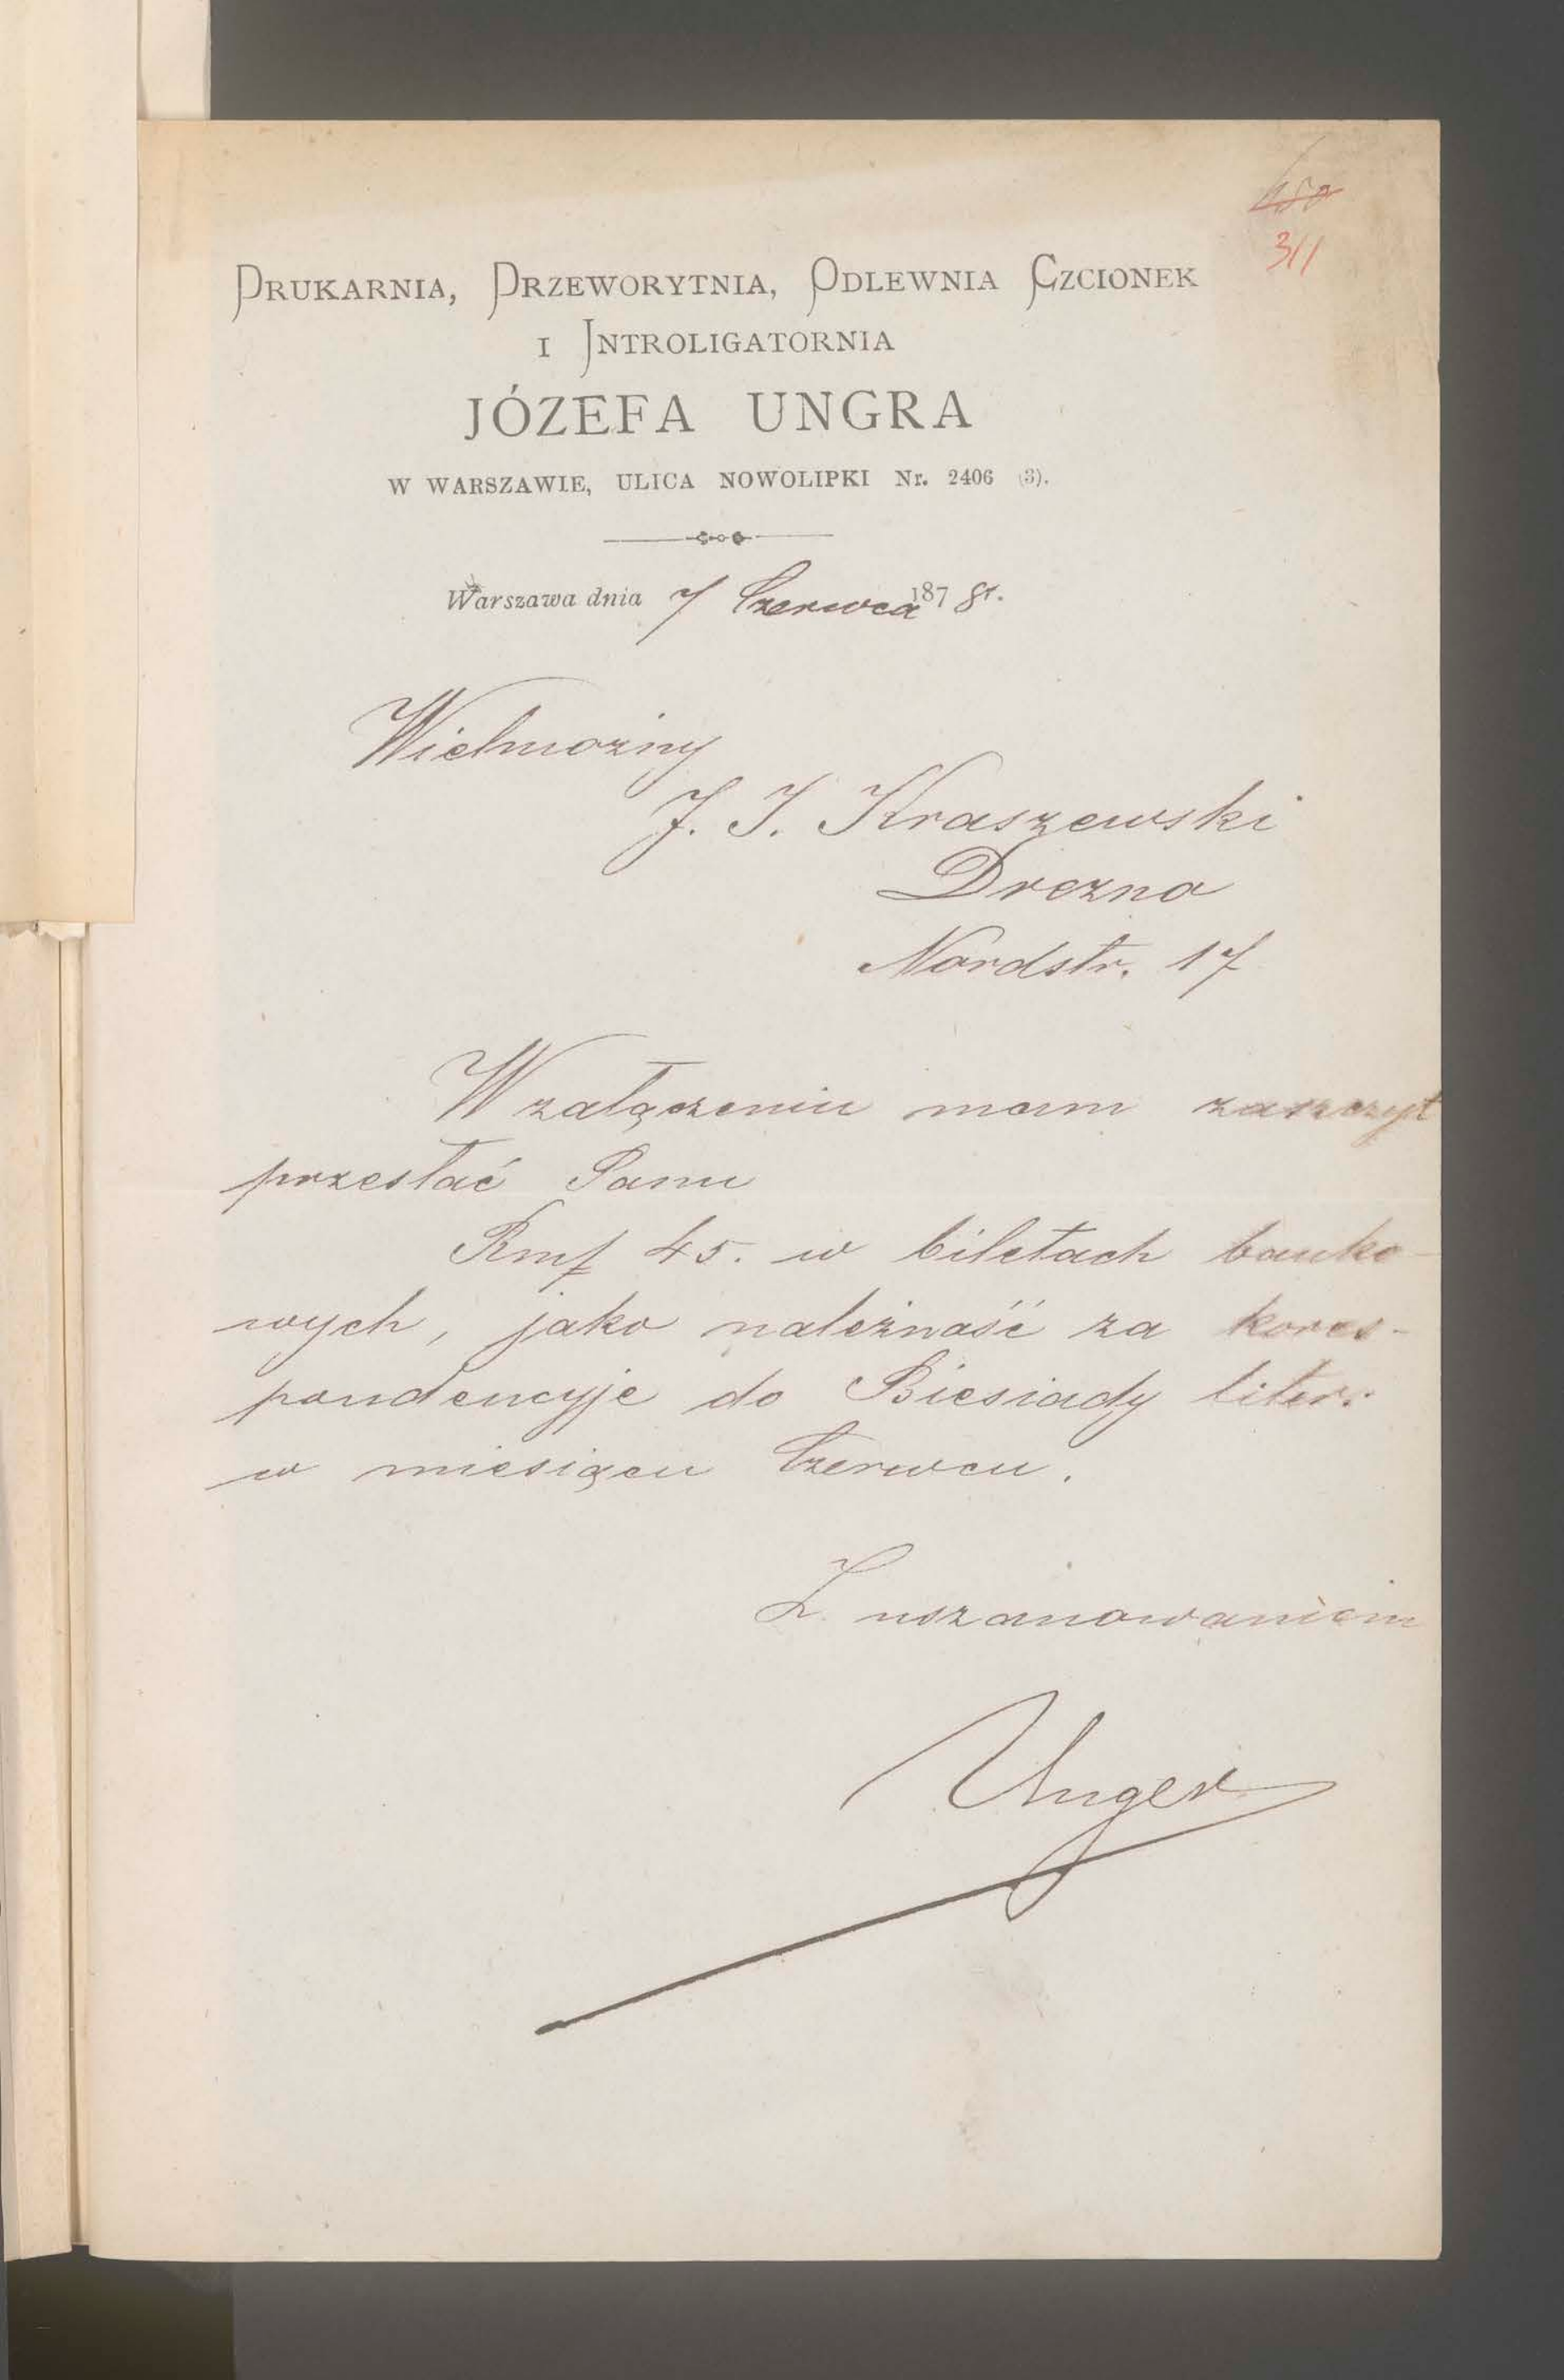 311
DRUKARNIA, DRZEWORYTNIA, ODLEWNIA CZCIONEK
I INTROLIGATORNIA
JÓZEFA UNGRA
W WARSZAWIE, ULICA NOWOLIPKI Nr. 2406 (3).
Warszawa dnia 7 Czerwca 1878 r.
Wielmożny
J. I. Kraszewski
Drezno
Nordstr. 17
W załączeniu mam zaszczyt
przesłać Panu
Rmf 45. w biletach banko-
wych, jako należność za kores-
pondencyje do Biesiady liter:
w miesiącu Czerwcu.
Z uszanowaniem
Unger